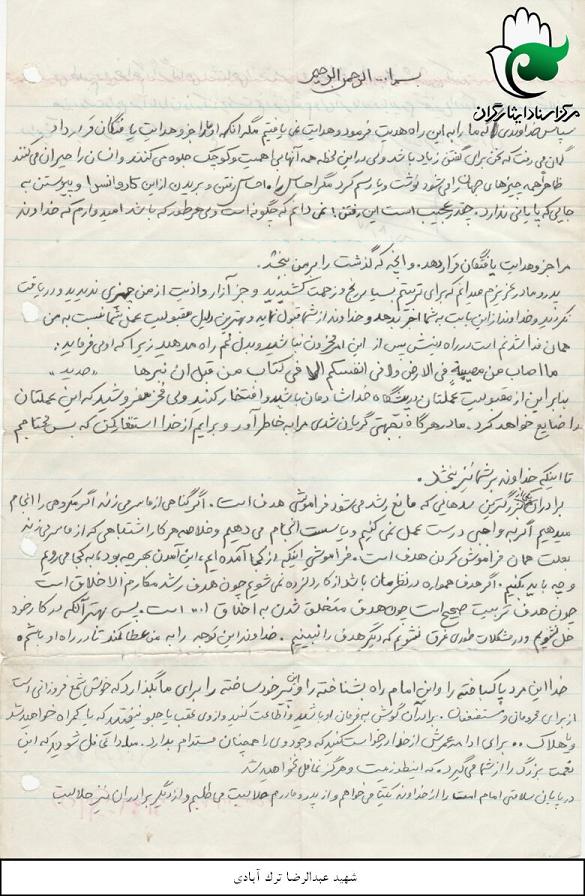 مرکز اسناد ایثارگران
بسم الله الرحمن الرحیم
سپاس خداوندی که ما را به این راه هدایت فرمود و هدایت نمی‌یافتیم مگر آنکه او ما را جزو هدایت یافتگان قرار داد
گمان می‌رفت که سخن برای گفتن زیاد باشد ولی در این لحظه همه آنها بی‌اهمیت و کوچک جلوه می‌کنند و انسان را حیران می‌کنند
ظاهر همه چیزهای جهان را می‌شود نوشت و یا رسم کرد مگر احساس را، احساس رفتن و بریدن از این کاروانسرا و پیوستن به
جایی که پایانی ندارد. چقدر عجیب است این رفتن! نمی‌دانم که چگونه است ولی هر طور که باشد امیدوارم که خداوند
مرا جزو هدایت یافتگان قرار دهد. و آنچه که گذشت را بر من ببخشد.
پدر و مادر عزیزم میدانم که برای تربیتم بسیار رنج و زحمت کشیدید و جز آزار و اذیت از من چیزی ندیدید و دریافت
نکردید و خداوند از این بابت به شما اجر بدهد و خداوند از شما قبول نماید و بهترین دلیل مقبولیت عمل شما نسبت به من
همان فدا شدنم است در راه دینش پس از این امر محزون نباشید و بدل غم راه مدهید زیرا که او می‌فرماید:
ما اصاب من مصیبة فی الارض ولا فی انفسکم الا فی کتاب من قبل ان نبرها «حدید»
بنابراین از مقبولیت عملتان در پیشگاه خدا شادمان باشید و افتخار کنید ولی فخر مفروشید که این عملتان
را ضایع خواهد کرد. مادر هرگاه بجهتی گریان شدی مرا به خاطر آور و برایم از خدا استغفار کن که بس محتاجم
تا اینکه خداوند بر شما نیز ببخشد.
برادران یکی از بزرگترین سدهایی که مانع رشد می‌شود فراموشی هدف است. اگر گناهی از ما سر می‌زند اگر مکروهی را انجام
میدهیم اگر به واجبی درست عمل نمی‌کنیم و یا سست انجام می‌دهیم و خلاصه هر کار اشتباهی که از ما سر می‌زند
بعلت همان فراموش کردن هدف است. فراموشی اینکه از کجا آمده‌ایم، این آمدن بهر چه بود، به کجا می‌رویم
و چه باید بکنیم. اگر هدف همواره در نظرمان باشد از کار دلزده نمی‌شویم چون هدف رشد مکارم الاخلاق است
چون هدف تربیت صحیح است چون هدف متخلق شدن به اخلاق الله است. پس بهتر آنکه در کار خود
حل نشویم و در مشکلات طوری غرق نشویم که دیگر هدف را نبینیم. خداوند این توجه را به من عطا کند تا در راه او باشم
خدا این مرد پاکباخته را و این امام راه بشناخته را و این نیز خود ساخته را برای ما بگذارد که خوش شمع فروزانی است
از برای محرومان و مستضعفان. برادران گوش به فرمان او باشید و اطاعت کنید و از وی عقب یا جلو نیفتید که یا گمراه خواهید شد
و یا هلاک .. برای ادامه عمرش از خدا درخواست کنید که وجود وی را همچنان مستدام بدارد. مبادا غافل شوید که این
نعمت بزرگ را از شما می‌گیرد. که اینطور نیست و هرگز غافل نخواهید شد
در پایان سلامتی امام امت را از خداوند یکتا می‌خواهم و از پدر و مادرم حلالیت می‌طلبم و از دیگر برادران نیز حلالیت
شهید عبدالرضا ترك آبادی